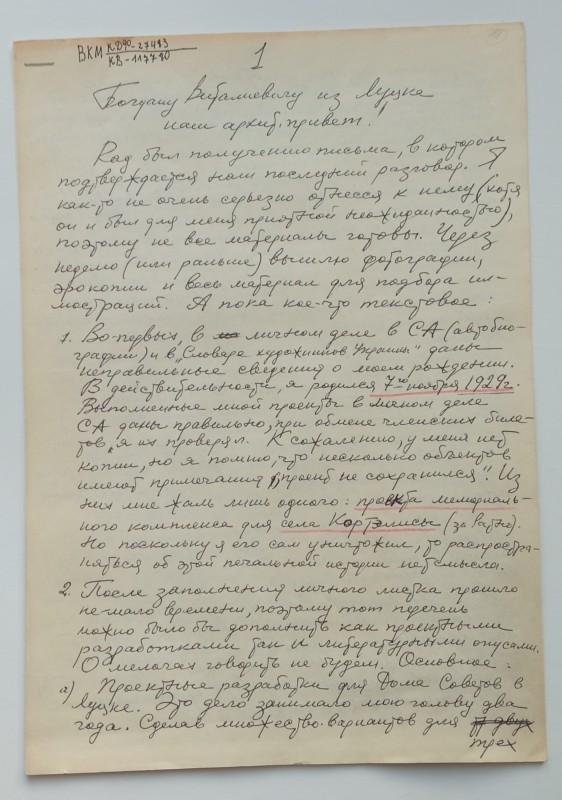 ВКМ КДФ-27493
КВ-117790
1
Богдану Виталиевичу из Луцка
наш архит. привет!
Рад был получению письма, в котором
подтверждается наш последний разговор. Я
как-то не очень серьезно отнесся к нему (хотя
он и был для меня приятной неожиданностью),
поэтому не все материалы готовы. Через
неделю (или раньше) вышлю фотографии,
эрокопии и весь материал для подбора ил-
люстраций. А пока кое-что текстовое:
1. Во-первых, в личном деле в СА (автобио-
графии) и в "Словаре художников Украины" даны
неправильные сведения о моем рождении.
В действительности, я родился 7го ноября 1929г.
Выполненные мной проекты в личном деле
СА даны правильно, при обмене членских биле-
тов я их проверял. К сожалению, у меня нет
копии, но я помню, что несколько объектов
имеют примечания "проект не сохранился". Из
них мне жаль лишь одного: проекта мемориаль-
ного комплекса для села Кортэлисы (за Ратно).
Но поскольку я его сам уничтожил, то распростра-
няться об этой печальной истории нет смысла.
2. После заполнения личного листка прошло
не мало времени, поэтому тот перечень
можно было бы дополнить как проектными
разработками так и литературными опусами.
О мелочах говорить не будем. Основное:
а) Проектные разработки для Дома Советов в
Луцке. Это дело занимало мою голову два
года. Сделав множество вариантов для двух
трех